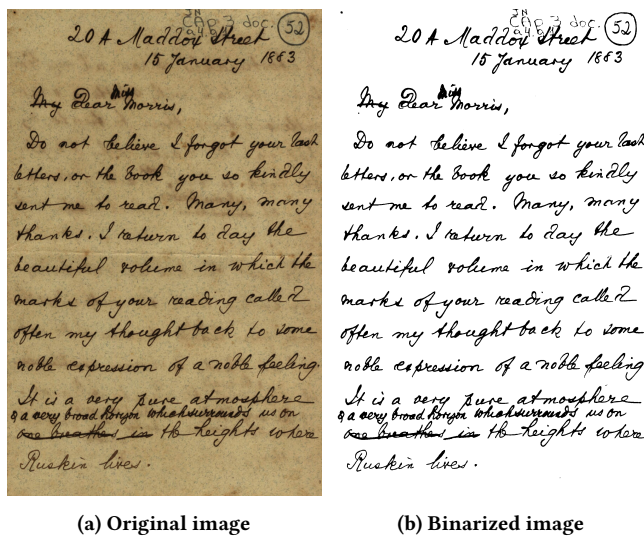 JN
CAP 3 doc. 52
a4.6
20 A Maddox Street
15 January 1883
Miss
My Dear Morris,
Do not believe I forgot your last
letters, or the book you so kindly
sent me to read. Many, many
thanks. I return to day the
beautiful volume in which the
marks of your reading called
often my thought back to some
noble expression of a noble feeling.
It is a very pure atmosphere
& a very broad horizon which surrounds us on
one breathes in the heights where
Ruskin lives.
(a) Original image
JN
CAP 3 doc. 52
20 A Maddox Street
15 January 1883
Miss
My Dear Morris,
Do not believe I forgot your last
letters, or the book you so kindly
sent me to read. Many, many
thanks. I return to day the
beautiful volume in which the
marks of your reading called
often my thought back to some
noble expression of a noble feeling
It is a very pure atmosphere
& a very broad horizon which surrounds us on
one breathes in the heights where
Ruskin lives.
(b) Binarized image